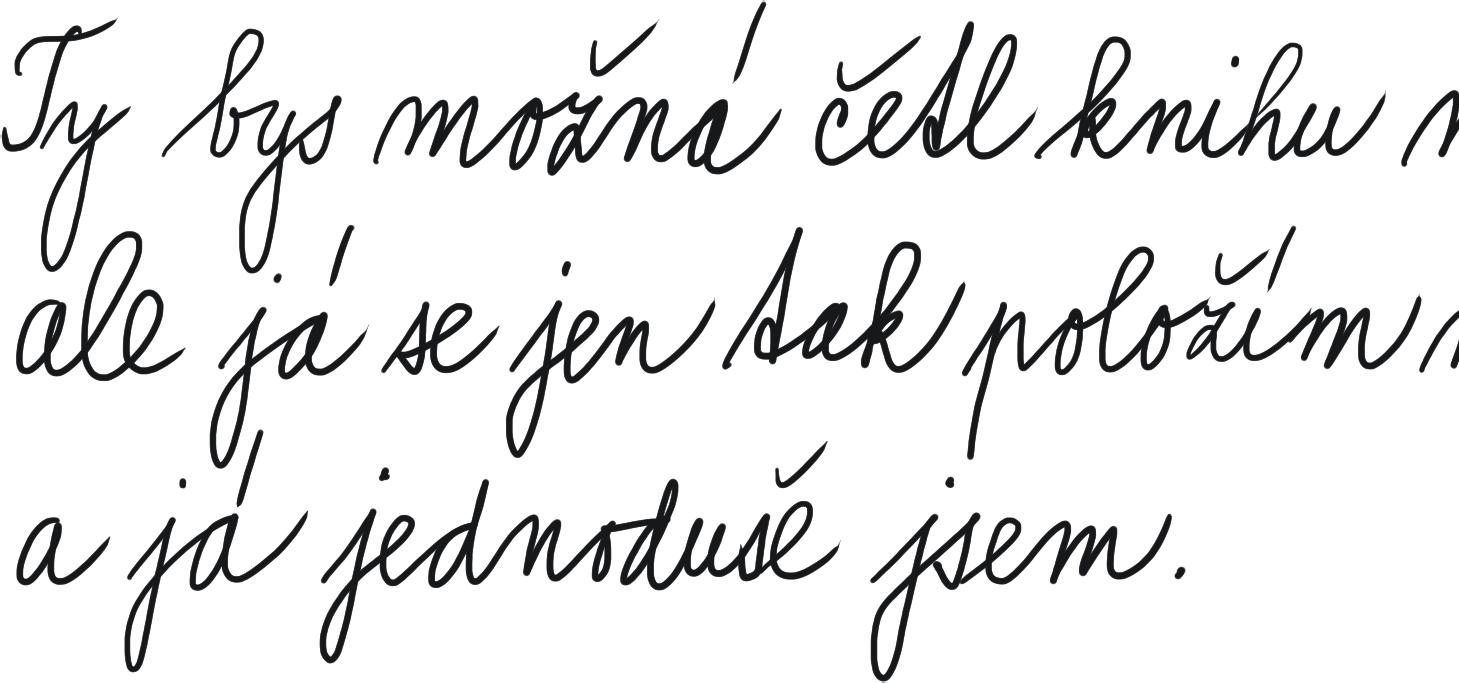 Ty bys možná četl knihu
ale já se jen tak položím
a já jednoduše jsem.